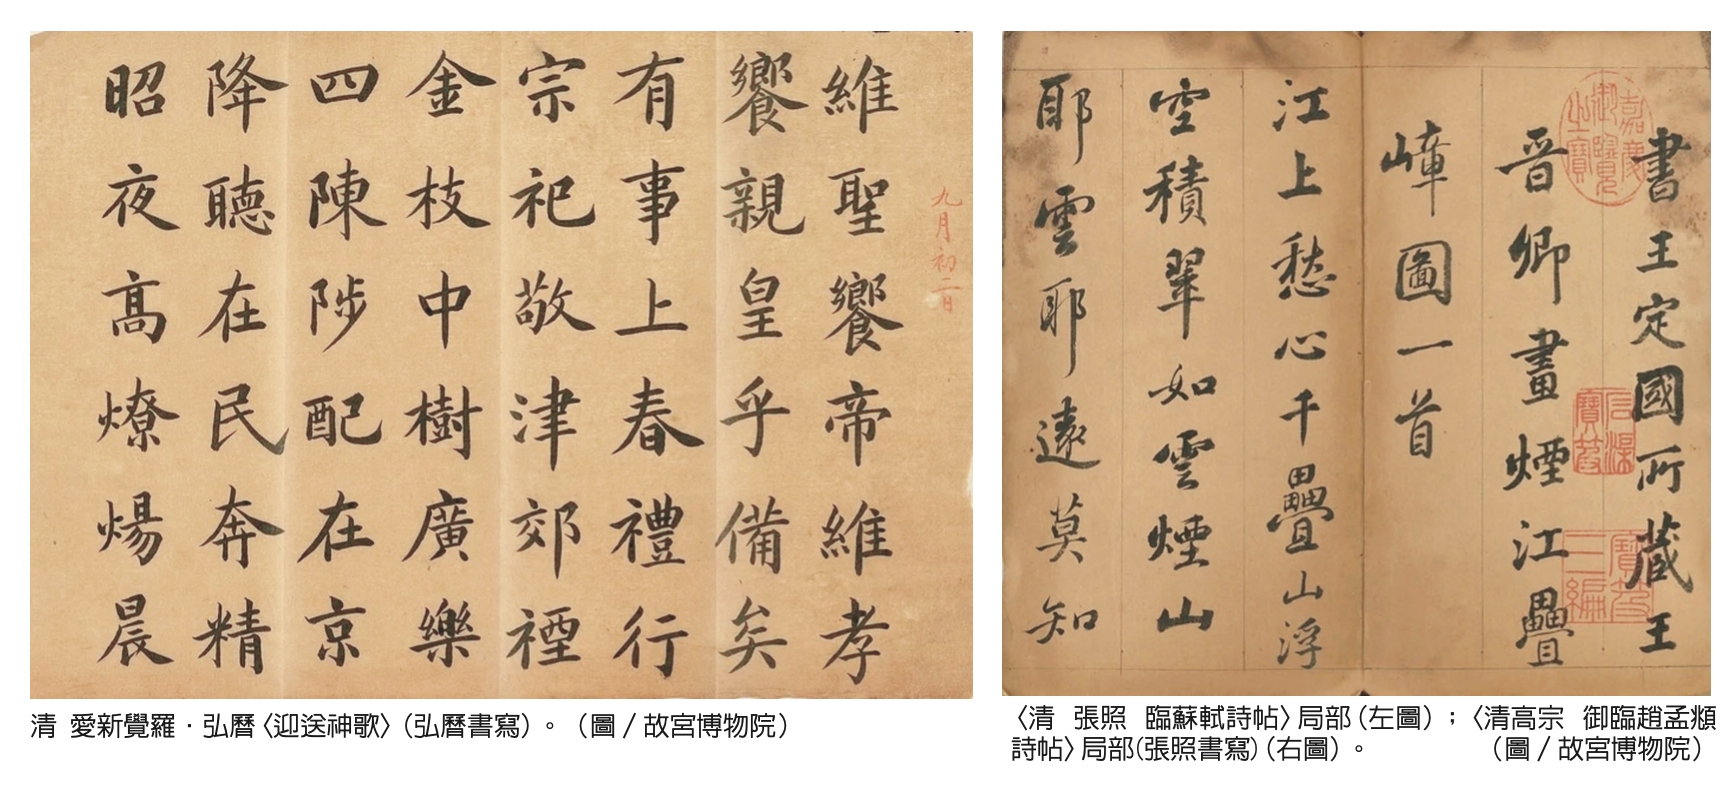 九月初二日
維聖饗帝維孝
饗親皇乎備矣
有事上春禮行
宗祀敬津郊禋
金枝中樹廣樂
四陳陟配在京
降聽在民奔精
昭夜高燎煬晨
清 愛新覺羅．弘曆〈迎送神歌〉（弘曆書寫）。（圖／故宮博物院）
嘉慶御覽之寶
書王定國所藏王
晉卿畫煙江疊
嶂圖一首
江上愁心千疊山浮
空積翠如雲煙山
耶雲耶遠莫知
〈清 張照 臨蘇軾詩帖〉局部（左圖）；〈清高宗 御臨趙孟頫
詩帖〉局部(張照書寫)（右圖）。 （圖／故宮博物院）